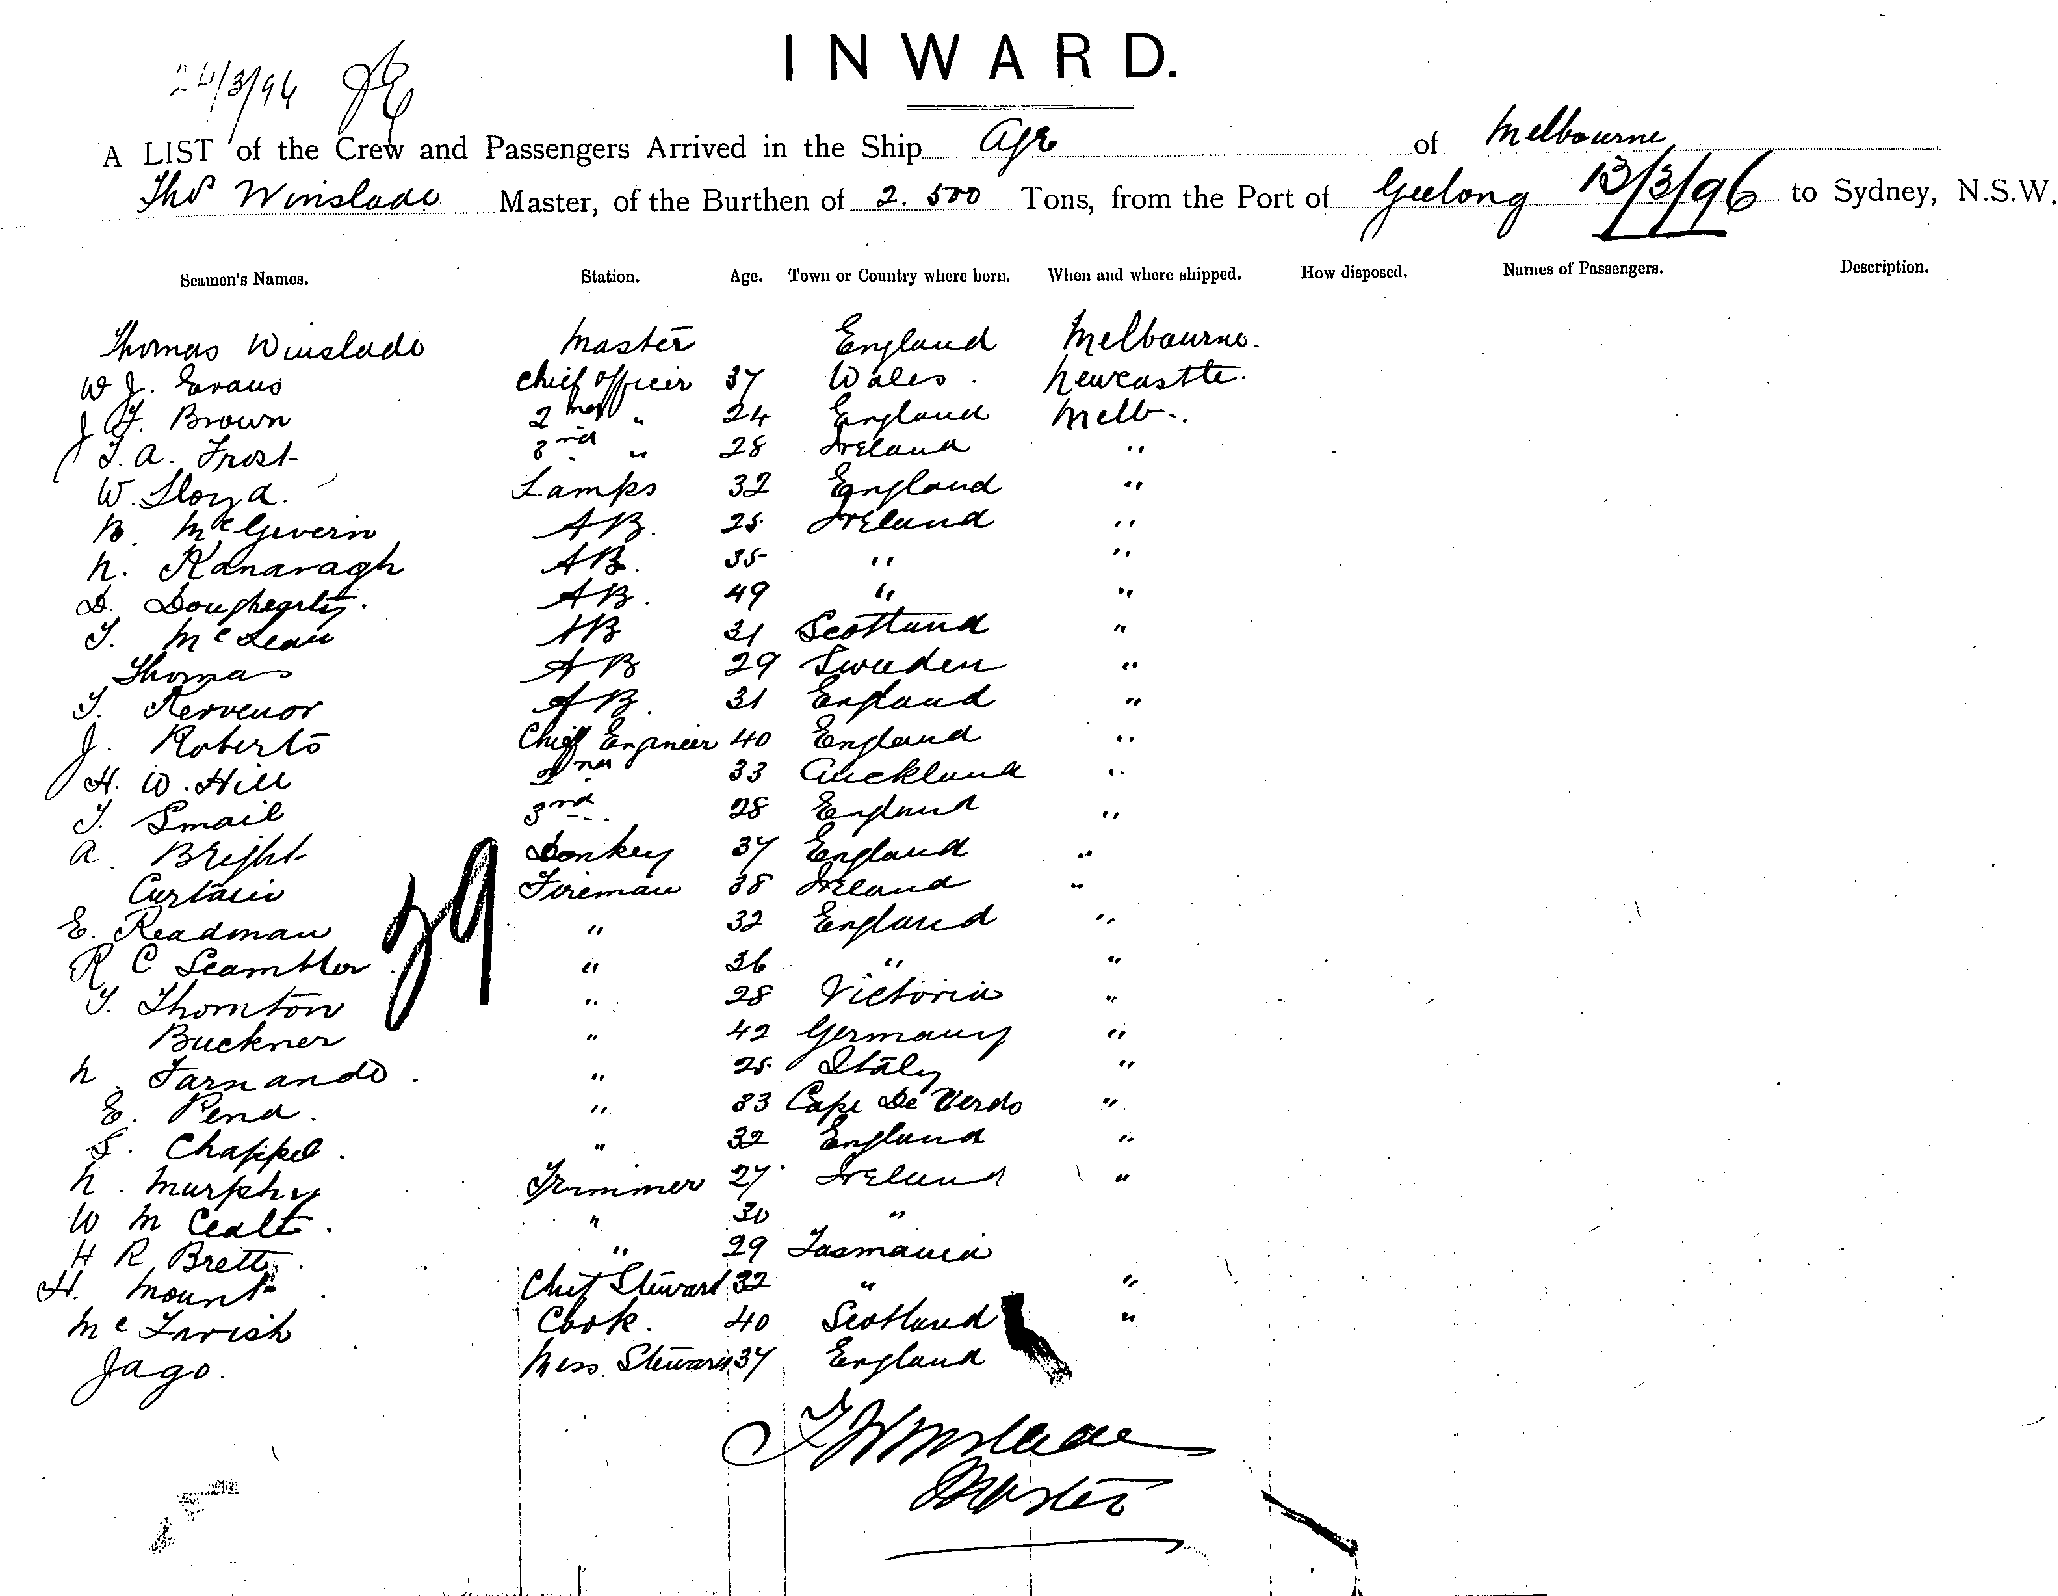 INWARD.
24/3/96
A LIST of the Crew and Passengers Arrived in the Ship Age of Melbourne
Thos Winslade Master, of the Burthen of 2.500 Tons, from the Port of Geelong 13/3/96 to Sydney, N.S.W.
Seamen's Names. Station. Age. Town or Country where born. When and where shipped. How disposed. Names of Passengers. Description.
Thomas Winslade Master England Melbourne.
W J. Evans Chief officer 37 Wales. Newcastle.
J F. Brown 2nd " 24 England Melb.
T. A. Frost 3rd " 28 Ireland "
W. Lloyd. Lamps 32 England "
B. McGivern AB. 25 Ireland "
N. Kanavagh AB. 35 " "
D. Dougherty. AB. 49 " "
T. McLean AB 31 Scotland "
Thomas AB 29 Sweden "
T. Kervenor AB. 31 England "
J. Roberts Chief Engineer 40 England "
H. W. Hill 2nd 33 Auckland "
T. Smail 3rd 28 England "
A. Bright Donkey 37 England "
Curtain Fireman 38 Ireland "
E. Readman " 32 England "
R C Scambler " 36 " "
T. Thornton " 28 Victoria "
Buckner " 42 Germany "
N. Farnando. " 25 Italy "
E. Pena. " 33 Cape De Verds "
S. Chappel. " 32 England "
N. Murphy Trimmer 27 Ireland "
W M " 30 "
H R Brett. " 29 Tasmania
H. Mount Chef Steward 32 " "
Mc Tavish Cook. 40 Scotland "
Jago. Mess. Steward 37 England
29
T Winslade
Master